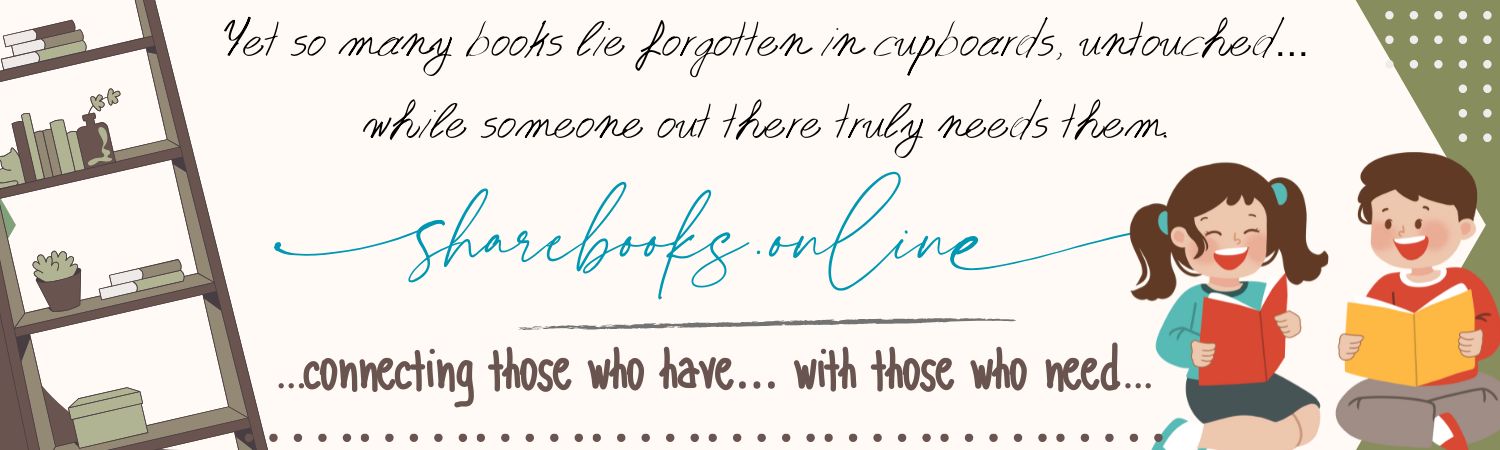 Yet so many books lie forgotten in cupboards, untouched...
while someone out there truly needs them.
sharebooks.online
...connecting those who have... with those who need...